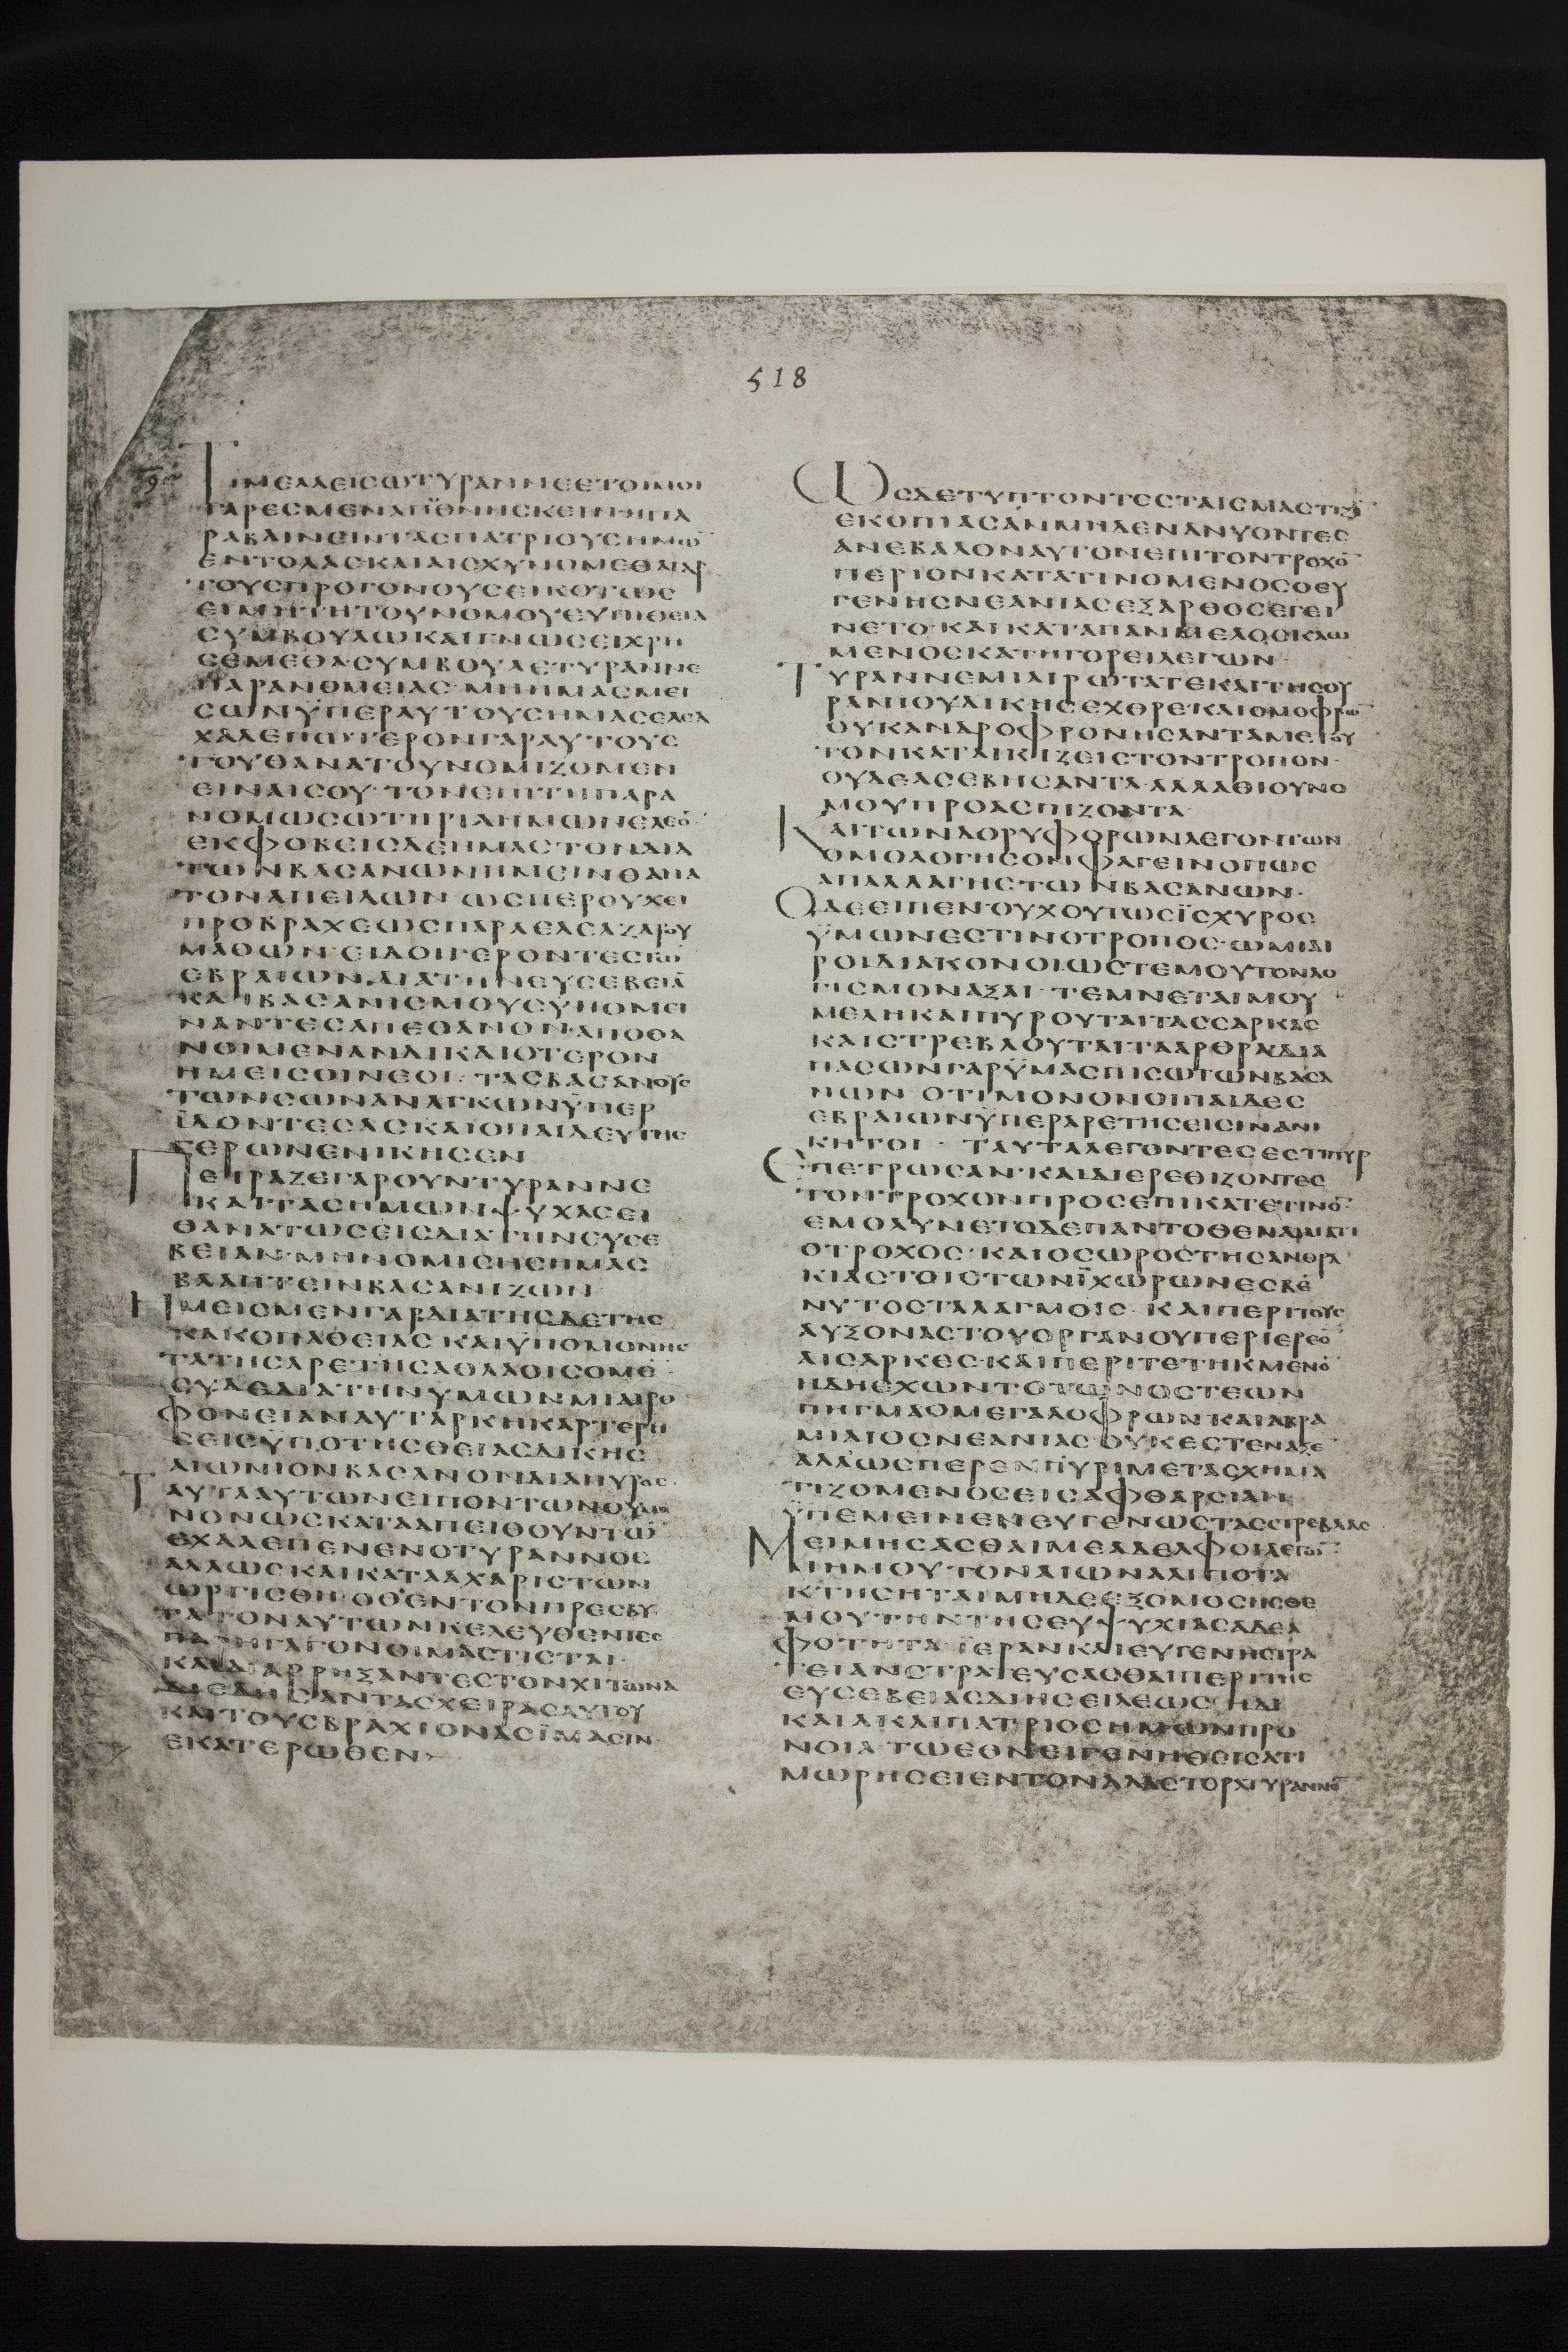 518
ΤΙΜΕΛΛΕΙΣΩΤΥΡΑΝΝΕΕΤΟΙΜΟΙ
ΓΑΡΕΣΜΕΝΑΠΟΘΝΗΣΚΕΙΝΗΠΑ
ΡΑΒΑΙΝΕΙΝΤΑΣΠΑΤΡΙΟΥΣΗΜΩ̅
ΕΝΤΟΛΑΣΚΑΙΑΙΣΧΥΝΟΜΕΘΑΓΑΡ
ΤΟΥΣΠΡΟΓΟΝΟΥΣΕΙΚΟΤΩΣ
ΕΙΜΗΤΗΤΟΥΝΟΜΟΥΕΥΠΙΘΕΙΑ
ΣΥΜΒΟΥΛΩΚΑΙΓΝΩΣΕΙΧΡΗ
ΣΕΜΕΘΑ·ΣΥΜΒΟΥΛΕΤΥΡΑΝΝΕ
ΠΑΡΑΝΟΜΕΙΑΣ·ΜΗΗΜΑΣΜΕΙ
ΣΩΝΫΠΕΡΑΥΤΟΥΣΗΜΑΣΕΛΕΑ
ΧΑΛΕΠΩΤΕΡΟΝΓΑΡΑΥΤΟΥΣ
ΤΟΥΘΑΝΑΤΟΥΝΟΜΙΖΟΜΕΝ
ΕΙΝΑΙΣΟΥ·ΤΟΝΕΠΙΤΗΠΑΡΑ
ΝΟΜΩΣΩΤΗΡΙΑΗΜΩΝΕΛΕΟ̅·
ΕΚΦΟΒΕΙΣΔΕΗΜΑΣΤΟΝΔΙΑ
ΤΩΝΒΑΣΑΝΩΝΗΜΙΝΘΑΝΑ
ΤΟΝΑΠΕΙΛΩΝ·ΩΣΠΕΡΟΥΧΕΙ
ΠΡΟΒΡΑΧΕΩΣΠΑΡΑΕΛΕΑΖΑΡΟΥ
ΜΑΘΩΝ·ΕΙΔΟΙΓΕΡΟΝΤΕΣΤΩ̅
ΕΒΡΑΙΩΝΔΙΑΤΗΝΕΥΣΕΒΕΙΑ̅
ΚΑΙΒΑΣΑΝΙΣΜΟΥΣΫΠΟΜΕΙ
ΝΑΝΤΕΣΑΠΕΘΑΝΟΝ·ΑΠΟΘΑ
ΝΟΙΜΕΝΑΝΔΙΚΑΙΟΤΕΡΟΝ
ΗΜΕΙΣΟΙΝΕΟΙ·ΤΑΣΒΑΣΑΝΟΥΣ
ΤΩΝΣΩΝΑΝΑΓΚΩΝΫΠΕΡ
ΪΔΟΝΤΕΣΑΣΚΑΙΟΠΑΙΔΕΥΤΗΣ
ΓΕΡΩΝΕΝΙΚΗΣΕΝ
ΠΕΙΡΑΖΕΓΑΡΟΥΝΤΥΡΑΝΝΕ
ΚΑΙΤΑΣΗΜΩΝΨΥΧΑΣΕΙ
ΘΑΝΑΤΩΣΕΙΣΔΙΑΤΗΝΕΥΣΕ
ΒΕΙΑΝ·ΜΗΝΟΜΙΣΗΣΗΜΑΣ
ΒΛΑΠΤΕΙΝΒΑΣΑΝΙΖΩΝ
ΗΜΕΙΣΜΕΝΓΑΡΔΙΑΤΗΣΔΕΤΗΣ
ΚΑΚΟΠΑΘΕΙΑΣΚΑΙΫΠΟΜΟΝΗΣ
ΤΑΤΗΣΑΡΕΤΗΣΑΘΛΑΟΙΣΟΜΕ̅
ΣΥΔΕΔΙΑΤΗΝΥΜΩΝΜΙΑΙΦΟ
ΦΟΝΕΙΑΝΑΥΤΑΡΚΗΚΑΡΤΕΡΗ
ΣΕΙΣΫΠΟΤΗΣΘΕΙΑΣΔΙΚΗΣ
ΑΙΩΝΙΟΝΒΑΣΑΝΟΝΔΙΑΠΥΡΟΣ·
ΤΑΥΤΑΑΥΤΩΝΕΙΠΟΝΤΩΝΟΥΜΟ
ΝΟΝΩΣΚΑΤΑΑΠΕΙΘΟΥΝΤΩ̅
ΕΧΑΛΕΠΕΝΕΝΟΤΥΡΑΝΝΟΣ
ΑΛΛΩΣΚΑΙΚΑΤΑΑΧΑΡΙΣΤΩΝ
ΩΡΓΙΣΘΗ·ΟΘΕΝΤΟΝΠΡΕΣΒΥ
ΤΑΤΟΝΑΥΤΩΝΚΕΛΕΥΘΕΝΤΕΣ
ΠΑΡΗΓΑΓΟΝΟΙΜΑΣΤΙΣΤΑΙ·
ΚΑΙΔΙΑΡΡΗΞΑΝΤΕΣΤΟΝΧΙΤΩΝΑ
ΔΙΕΔΗΣΑΝΤΑΣΧΕΙΡΑΣΑΥΤΟΥ
ΚΑΙΤΟΥΣΒΡΑΧΙΟΝΑΣΪΜΑΣΙΝ·
ΕΚΑΤΕΡΩΘΕΝ
ΩΣΔΕΤΥΠΤΟΝΤΕΣΤΑΙΣΜΑΣΤΙΞΙ̅
ΕΚΟΠΙΑΣΑΝΜΗΔΕΝΑΝΥΟΝΤΕΣ
ΑΝΕΒΑΛΟΝΑΥΤΟΝΕΠΙΤΟΝΤΡΟΧΟ̅
ΠΕΡΙΟΝΚΑΤΑΤΙΝΟΜΕΝΟΣΟΕΥ
ΓΕΝΗΣΝΕΑΝΙΑΣΕΞΑΡΘΟΣΕΓΕΙ
ΝΕΤΟ·ΚΑΙΚΑΤΑΠΑΝΜΕΛΟΣΚΛΩ
ΜΕΝΟΣΚΑΤΗΓΟΡΕΙΛΕΓΩΝ·
ΤΥΡΑΝΝΕΜΙΑΡΩΤΑΤΕΚΑΙΤΗΣΟΥ
ΡΑΝΙΟΥΔΙΚΗΣΕΧΘΡΕ·ΚΑΙΩΜΟΦΡΩ̅
ΟΥΚΑΝΔΡΟΦΟΝΗΣΑΝΤΑΜΕΤΟΥ
ΤΟΝΚΑΤΑΙΚΙΖΕΙΣΤΟΝΤΡΟΠΟΝ·
ΟΥΔΕΑΣΕΒΗΣΑΝΤΑ·ΑΛΛΑΘΙΟΥΝΟ
ΜΟΥΠΡΟΑΣΠΙΖΟΝΤΑ
ΚΑΙΤΩΝΔΟΡΥΦΟΡΩΝΛΕΓΟΝΤΩΝ
ΟΜΟΛΟΓΗΣΟΝΦΑΓΕΙΝΟΠΩΣ
ΑΠΑΛΛΑΓΗΣΤΩΝΒΑΣΑΝΩΝ·
ΟΔΕΕΙΠΕΝ·ΟΥΧΟΥΤΩΣΪΣΧΥΡΟΣ
ΫΜΩΝΕΣΤΙΝΟΤΡΟΠΟΣ·ΩΜΙΑΙ
ΡΟΙΔΙΑΚΟΝΟΙΩΣΤΕΜΟΥΤΟΝΛΟ
ΓΙΣΜΟΝΑΞΑΙ·ΤΕΜΝΕΤΑΙΜΟΥ
ΜΕΛΗΚΑΙΠΥΡΟΥΤΑΙΤΑΣΣΑΡΚΑΣ
ΚΑΙΣΤΡΕΒΛΟΥΤΑΙΤΑΑΡΘΡΑ·ΔΙΑ
ΠΑΣΩΝΓΑΡΫΜΑΣΠΙΣΩΤΩΝΒΑΣΑ
ΝΩΝ ΟΤΙΜΟΝΟΝΟΙΠΑΙΔΕΣ
ΕΒΡΑΙΩΝΫΠΕΡΑΡΕΤΗΣΕΙΣΙΝΑΝΙ
ΚΗΤΟΙ· ΤΑΥΤΑΛΕΓΟΝΤΕΣΕΣΤΙΠΥΡ
ΕΠΕΤΡΩΣΑΝ·ΚΑΙΔΙΕΡΕΘΙΖΟΝΤΕΣ
ΤΟΝΤΡΟΧΟΝΠΡΟΣΕΠΙΚΑΤΕΤΙΝΟ̅·
ΕΜΟΛΥΝΕΤΩΔΕΠΑΝΤΟΘΕΝΑΙΜΑΤΙ
ΟΤΡΟΧΟΣ·ΚΑΙΟΣΩΡΟΣΤΗΣΑΝΘΡΑ
ΚΙΑΣΤΟΙΣΤΩΝΪΧΩΡΩΝΕΣΒΕ̅
ΝΥΤΟΣΤΑΛΑΓΜΟΙΣ·ΚΑΙΠΕΡΙΤΟΥΣ
ΑΥΞΟΝΑΣΤΟΥΟΡΓΑΝΟΥΠΕΡΙΕΡΕΟ̅
ΑΙΣΑΡΚΕΣ·ΚΑΙΠΕΡΙΤΕΤΗΚΜΕΝΟ̅
ΗΔΗΕΧΩΝΤΟΤΩΝΟΣΤΕΩΝ
ΠΗΓΜΑΟΜΕΓΑΛΟΦΡΩΝΚΑΙΑΒΡΑ
ΜΙΑΙΟΣΝΕΑΝΙΑΣΟΥΚΕΣΤΕΝΑΞΕ̅
ΑΛΛΩΣΠΕΡΕΝΠΥΡΙΜΕΤΑΣΧΗΜΑ
ΤΙΖΟΜΕΝΟΣΕΙΣΑΦΘΑΡΣΙΑΝ
ΫΠΕΜΕΙΝΕΝΕΥΓΕΝΩΣΤΑΣΣΤΡΕΒΛΑΣ
ΜΕΙΜΗΣΑΣΘΑΙΜΕΑΔΕΛΦΟΙΛΕΓΩ̅·
ΜΗΜΟΥΤΟΝΑΙΩΝΑΛΙΠΟΤΑ
ΚΤΗΣΗΤΑΙΜΗΔΕΕΞΟΜΟΣΗΣΘΕ
ΜΟΥΤΗΝΤΗΣΕΥΨΥΧΙΑΣΑΔΕΛ
ΦΟΤΗΤΑ·ΪΕΡΑΝΚΑΙΕΥΓΕΝΗΣΤΡΑ
ΤΕΙΑΝΣΤΡΑΤΕΥΣΑΣΘΑΙΠΕΡΙΤΗΣ
ΕΥΣΕΒΕΙΑΣΔΙΗΣΕΙΛΕΩΣΗΔΙ
ΚΑΙΑΚΑΙΠΑΤΡΙΟΣΗΜΩΝΠΡΟ
ΝΟΙΑ·ΤΩΕΘΝΕΙΓΕΝΗΘΕΙΣΑΤΙ
ΜΩΡΗΣΕΙΕΝΤΟΝΑΛΑΣΤΟΡΑΤΥΡΑΝΝΟ̅